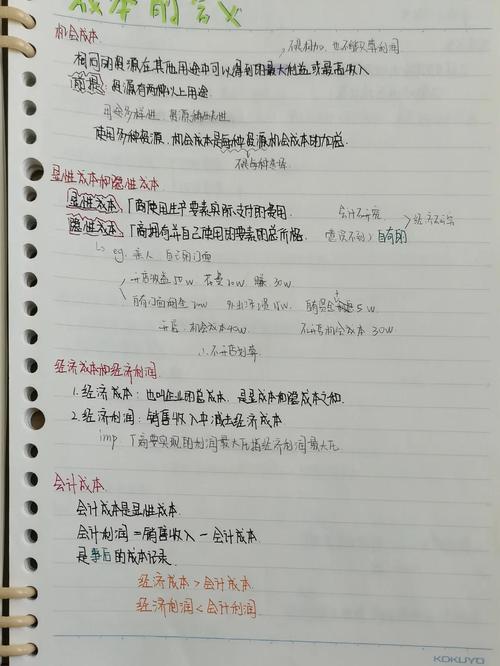 成本的含义
机会成本
不是相加，也不能只算利润
相同的资源在其他用途中可以得到的最大利益或最高收入
前提：资源有两种以上用途
用途多样性 资源稀缺性
使用多种资源，机会成本是每种资源机会成本的加总
不是每种选择
显性成本和隐性成本
显性成本：厂商使用生产要素实际支付的费用
隐性成本：厂商拥有并自己使用的要素的总价格
自有的
eg. 自己的门面
开店收益50w 花费20w 赚30w
开店：机会成本40w 不开店机会成本30w
∴不开店划算
经济成本和经济利润
1. 经济成本：也叫企业的总成本，是显成本和隐成本之和
2. 经济利润：销售收入中减去经济成本
imp 厂商要实现的利润最大化指经济利润最大化
会计成本
会计成本是显性成本
会计利润 = 销售收入 - 会计成本
是事后的成本记录
经济成本 > 会计成本
经济利润 < 会计利润
KOKUYO